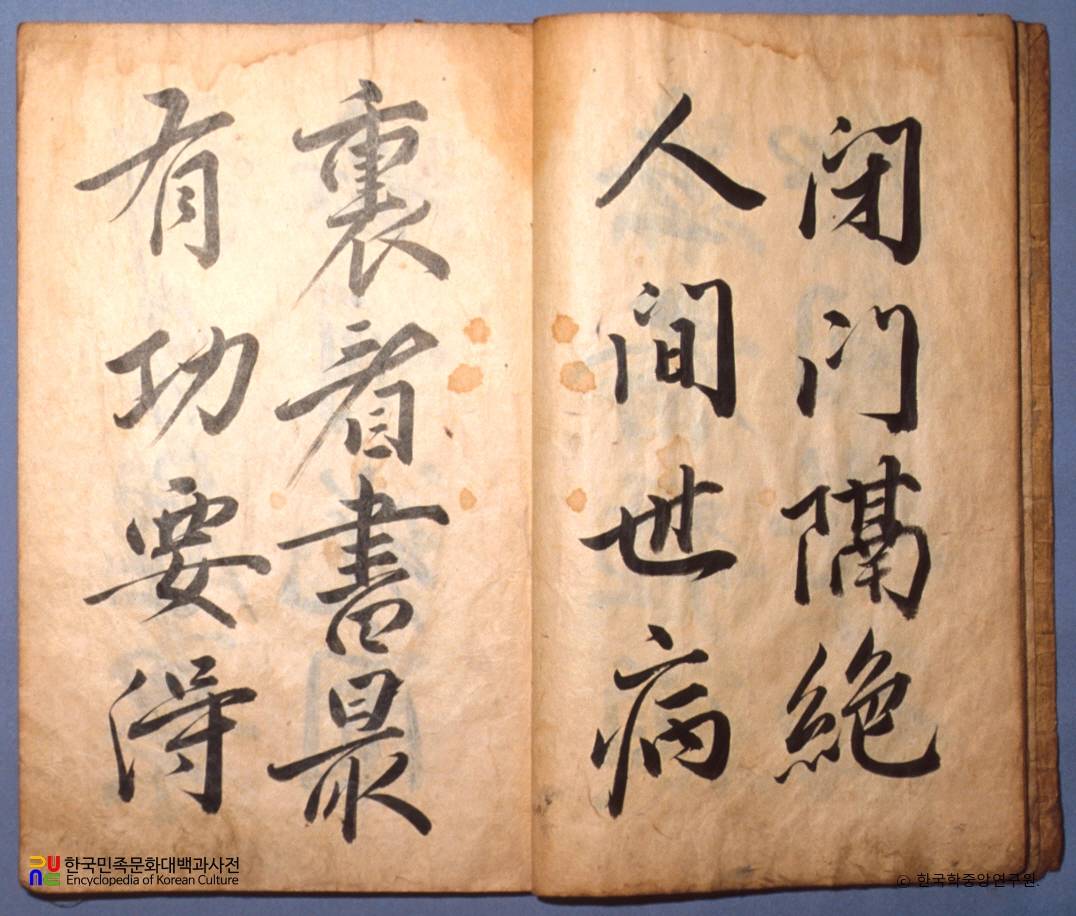 闭门隔絶
人间世病
裏看書最
有功要得
한국민족문화대백과사전
Encyclopedia of Korean Culture
© 한국학중앙연구원.